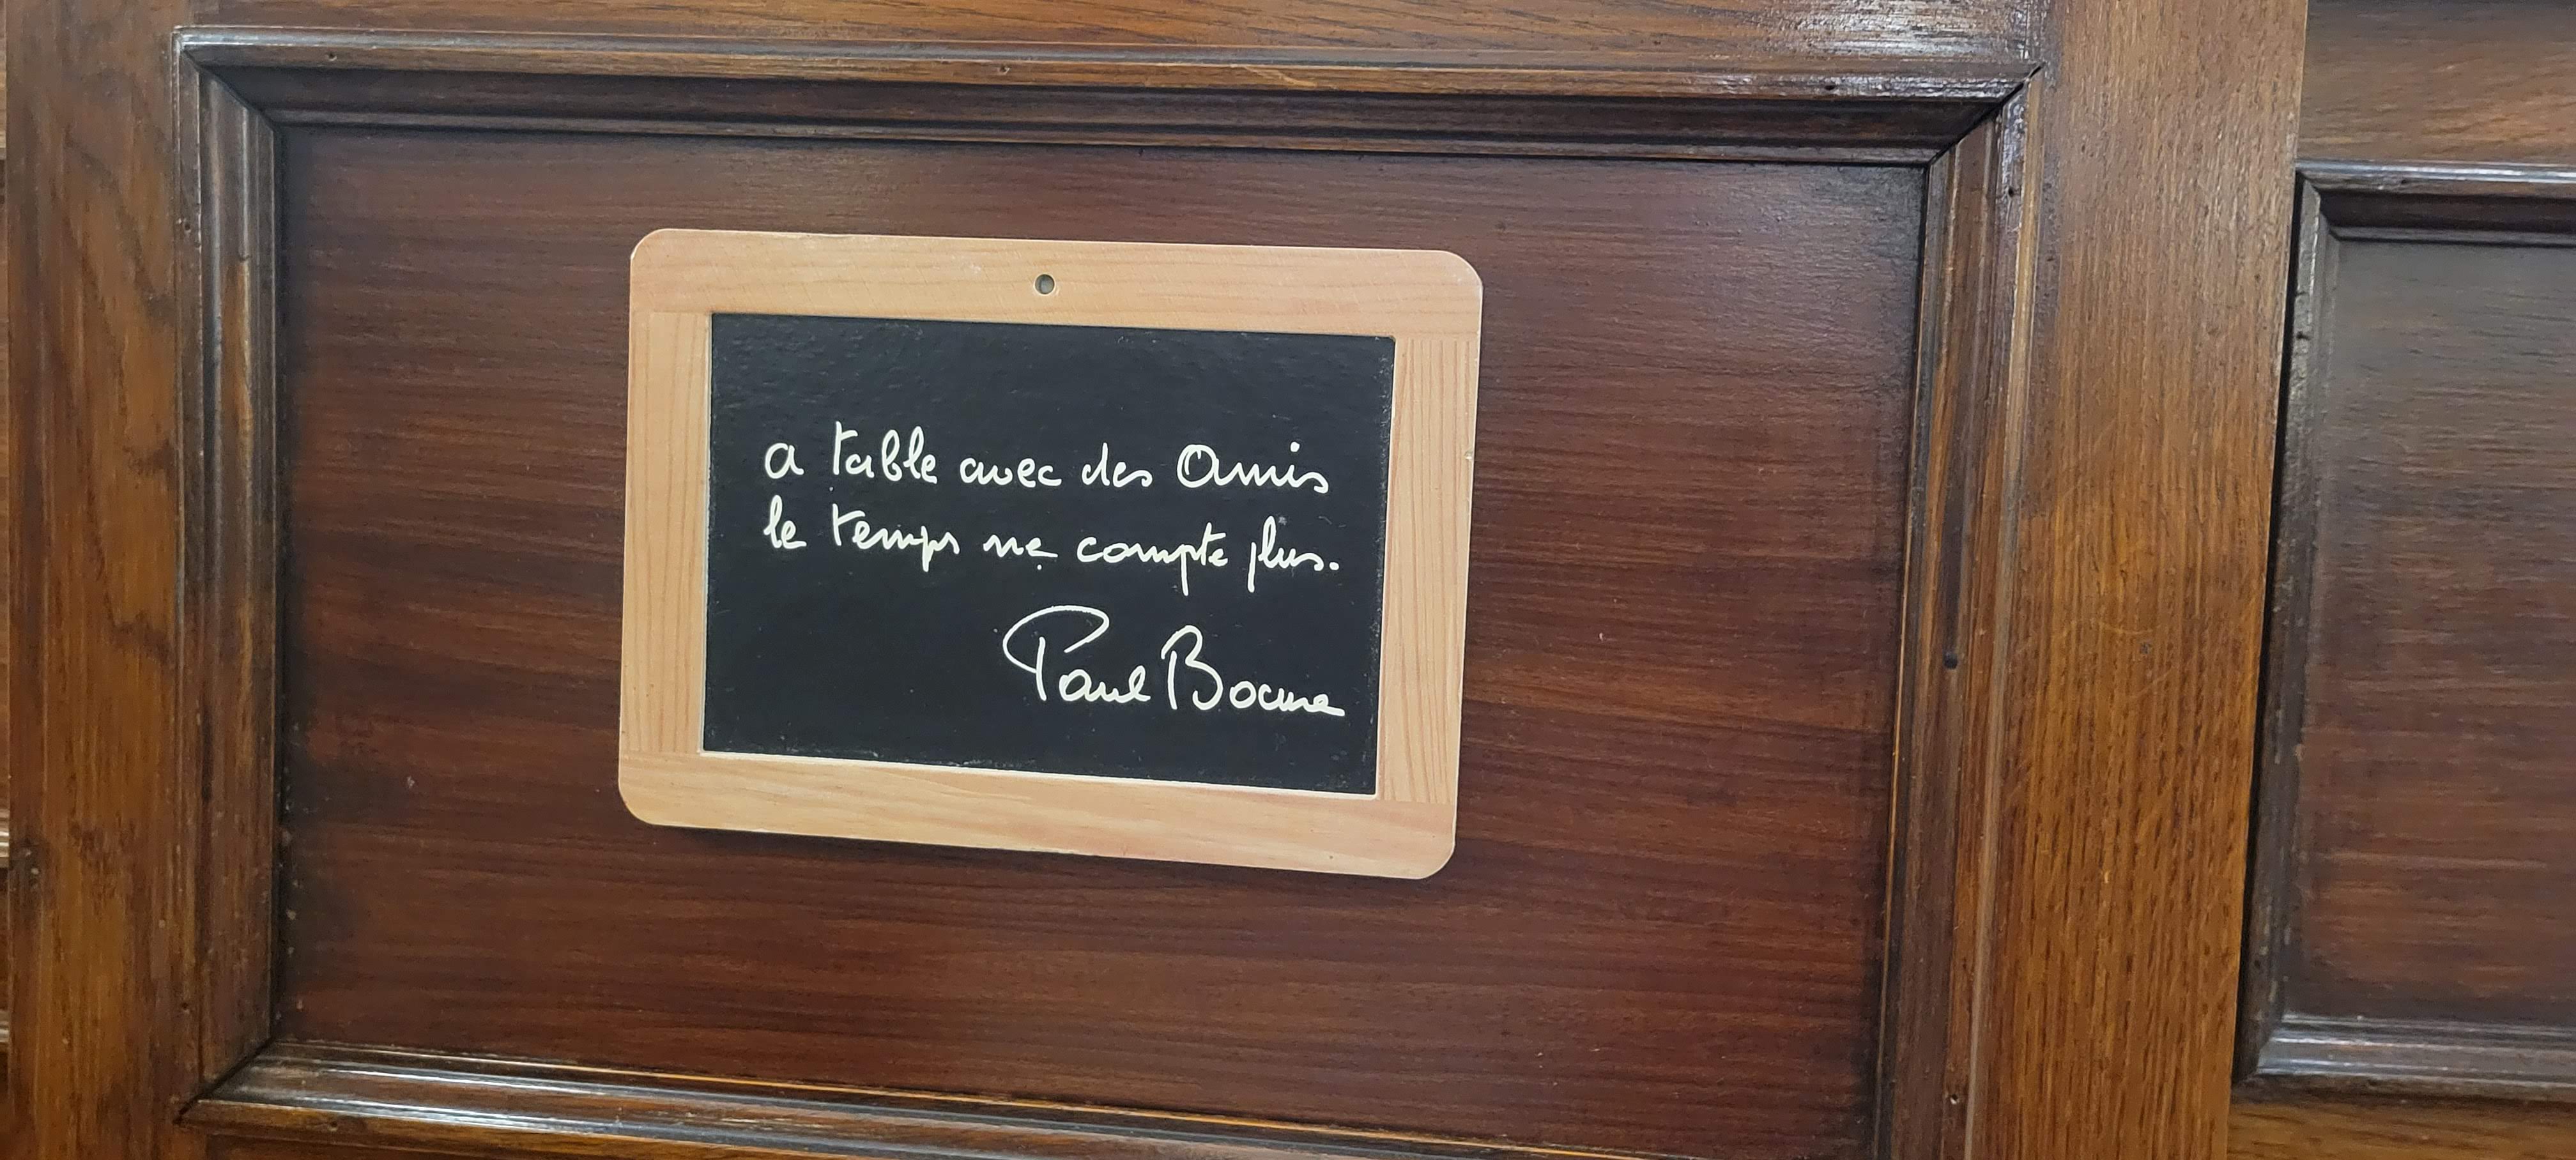 a table avec des Amis
le temps ne compte plus.
Paul Bocuse